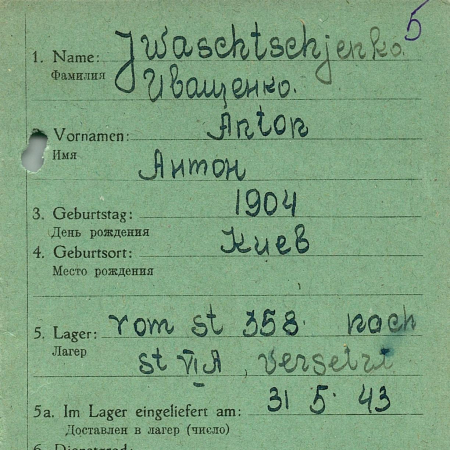 5
1. Name: Jwaschtschjenko.
Фамилия Иващенко.
Vornamen: Anton
Имя Антон
3. Geburtstag: 1904
День рождения
4. Geburtsort: Киев
Место рождения
5. Lager: vom st 358. nach
Лагер st VI A, versetzt
5a. Im Lager eingeliefert am: 31 5. 43
Доставлен в лагер (число)
6. Dienstgrad: